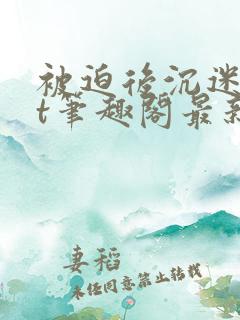 被迫后沉迷
t笔趣阁最新
妻稻
未经同意禁止转载